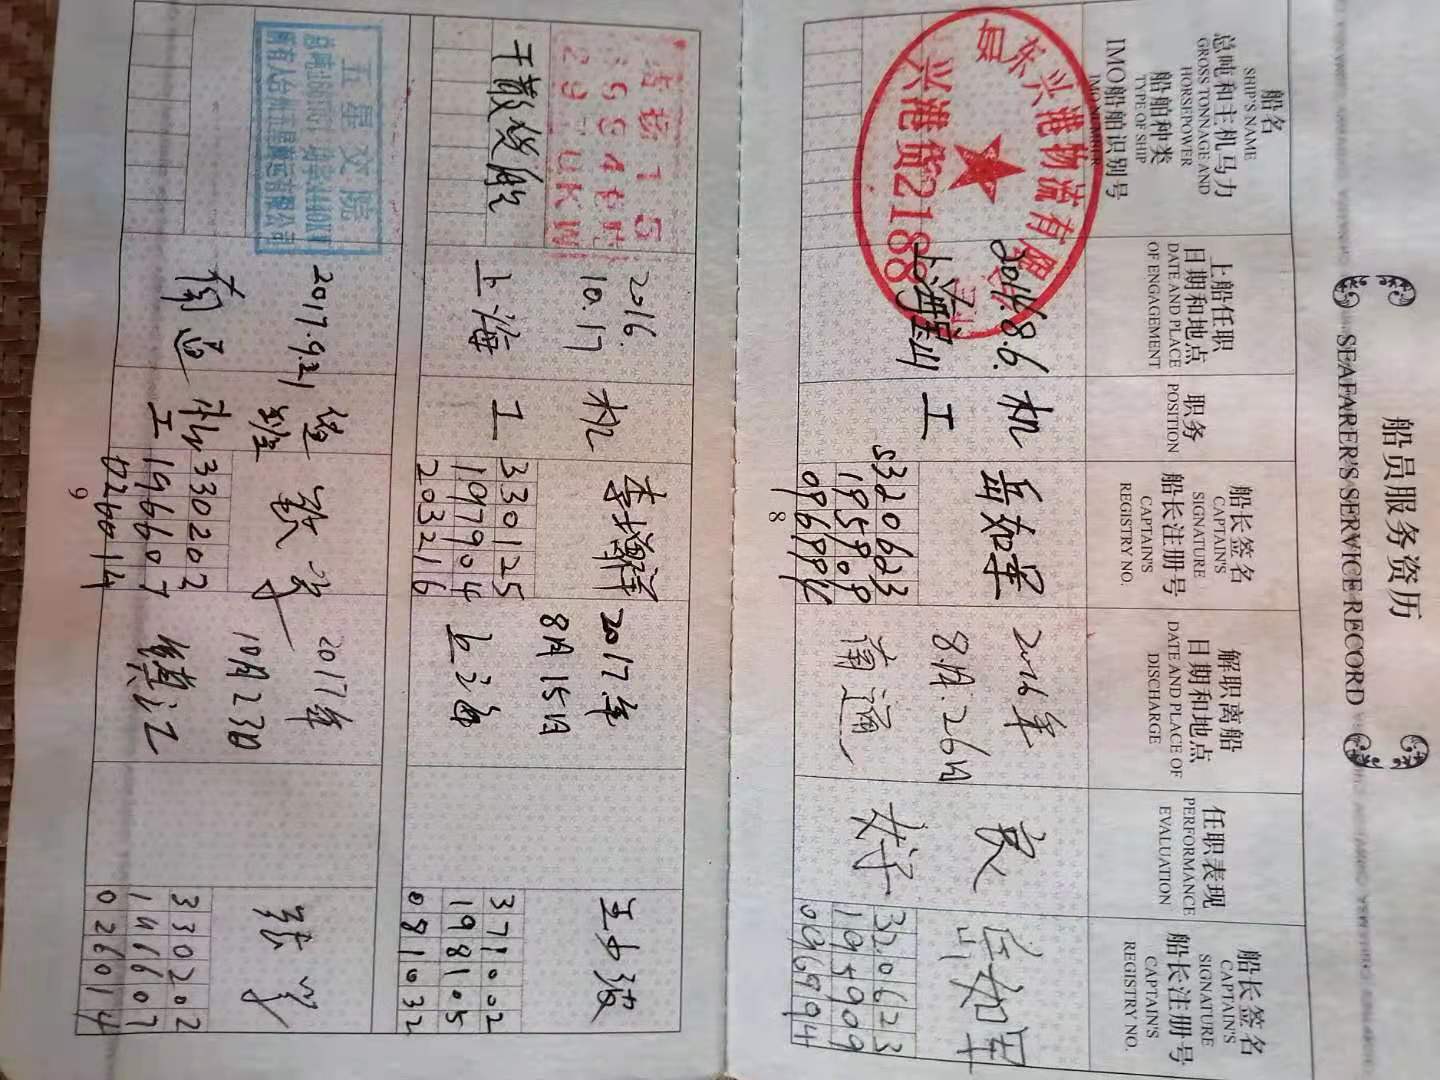 船员服务资历
SEAFARER'S SERVICE RECORD
船名
SHIP'S NAME
总吨和主机马力
GROSS TONNAGE AND
HORSEPOWER
船舶种类
TYPE OF SHIP
IMO船舶识别号
IMO NUMBER
上船任职
日期和地点
DATE AND PLACE
OF ENGAGEMENT
职务
POSITION
船长签名
CAPTAIN'S
SIGNATURE
船长注册号
CAPTAIN'S
REGISTRY NO.
解职离船
日期和地点
DATE AND PLACE OF
DISCHARGE
任职表现
PERFORMANCE
EVALUATION
船长签名
CAPTAIN'S
SIGNATURE
船长注册号
CAPTAIN'S
REGISTRY NO.
东兴港物流有限
兴港货2188
2016.8.6.
上海宝山
机
工
320623
195909
2016年
8月.26日
南通
良
好
320623
195909
096994
8
2016.
10.17
上海
机
工
李
330125
197904
203216
2017年
8月15日
上海
371002
198105
081032
干散货船
五星交院
2017.9.21
南通
值班
机工
330202
196607
026014
2017年
10月23日
镇江
330202
196607
026014
9